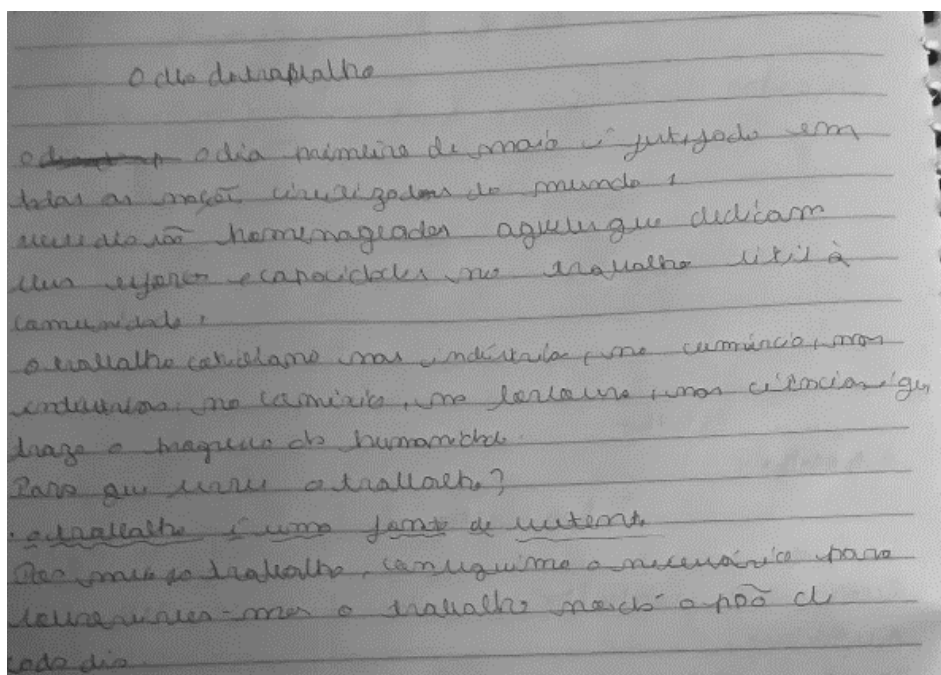 O dia do trabalho
O dia primeiro de maio é festejado em
todas as nações civilizadas do mundo,
nesse dia são homenageados aqueles que dedicam
seus esforços e capacidades no trabalho útil à
comunidade,
o trabalho cotidiano nas indústria, no comércio, nas
no comércio, na lavoura, nas ciências é que
traze o progresso da humanidade.
Para que serve o trabalho?
o trabalho é uma fonte de sustento
Por meio do trabalho, conseguimo o necessário para
sobreviver-mos o trabalho nos dá o pão de
cada dia.